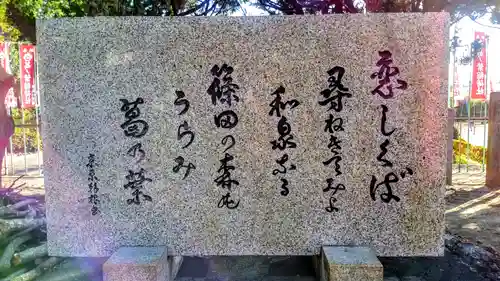 恋しくば
尋ねきてみよ
和泉なる
篠田の森の
うらみ
葛の葉